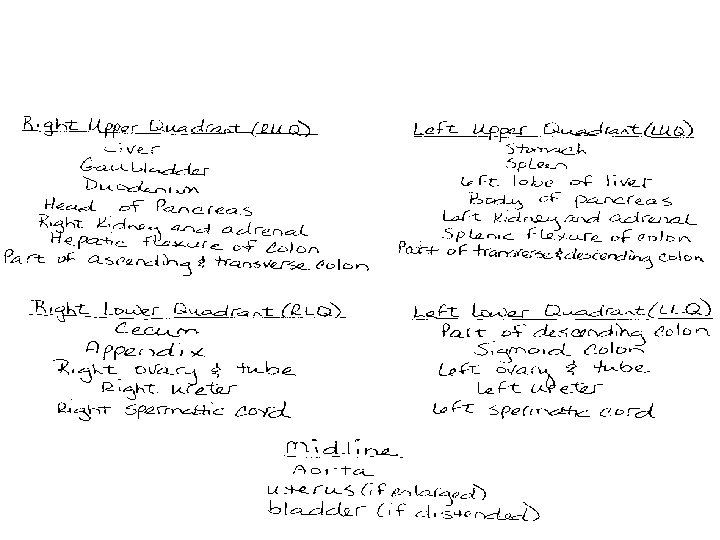 Right Upper Quadrant (RUQ)
Liver
Gallbladder
Duodenium
Head of Pancreas
Right Kidney and adrenal
Hepatic flexure of Colon
Part of ascending & transverse colon
Left Upper Quadrant (LUQ)
Stomach
Spleen
Left lobe of liver
Body of pancreas
Left Kidney and adrenal
Splenic flexure of colon
Part of transverse & descending colon
Right Lower Quadrant (RLQ)
Cecum
Appendix
Right ovary & tube
Right ureter
Right spermatic cord
Left Lower Quadrant (LLQ)
Part of descending colon
Sigmoid colon
Left ovary & tube
Left ureter
Left spermatic cord
Midline
Aorta
uterus (if enlarged)
bladder (if distended)